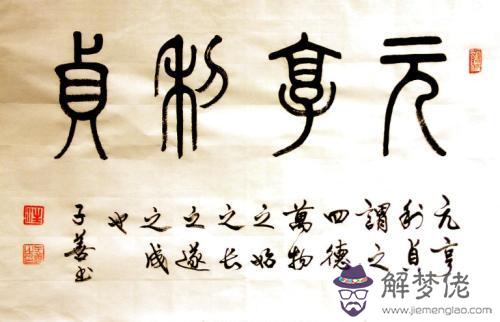 元亨利貞
元亨
利貞
謂之
四德
萬物
之始
之長
之遂
之成
也
子善书
解梦佬
www.jiemenglao.com